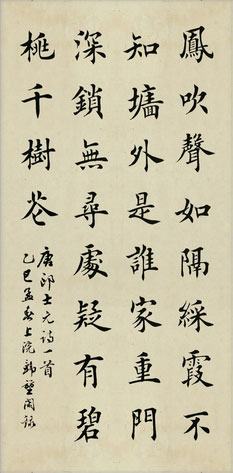 鳳吹聲如隔綵霞不
知墻外是誰家重門
深鎖無尋處疑有碧
桃千樹花
唐郎士元詩一首
乙巳孟春上浣